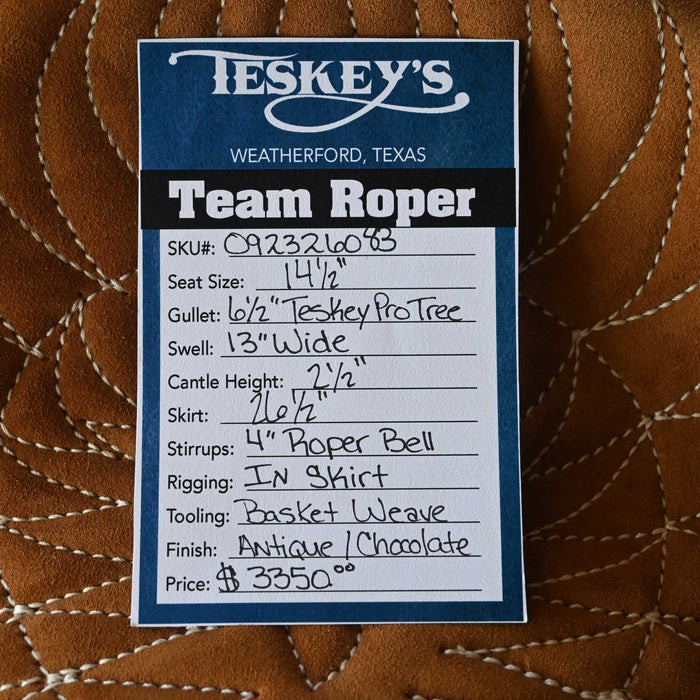 TESKEY'S
WEATHERFORD, TEXAS
Team Roper
SKU#: 092326083
Seat Size: 14½"
Gullet: 6½" Teskey Pro Tree
Swell: 13" Wide
Cantle Height: 2½"
Skirt: 26½"
Stirrups: 4" Roper Bell
Rigging: IN Skirt
Tooling: Basket Weave
Finish: Antique / Chocolate
Price: $ 3350.00